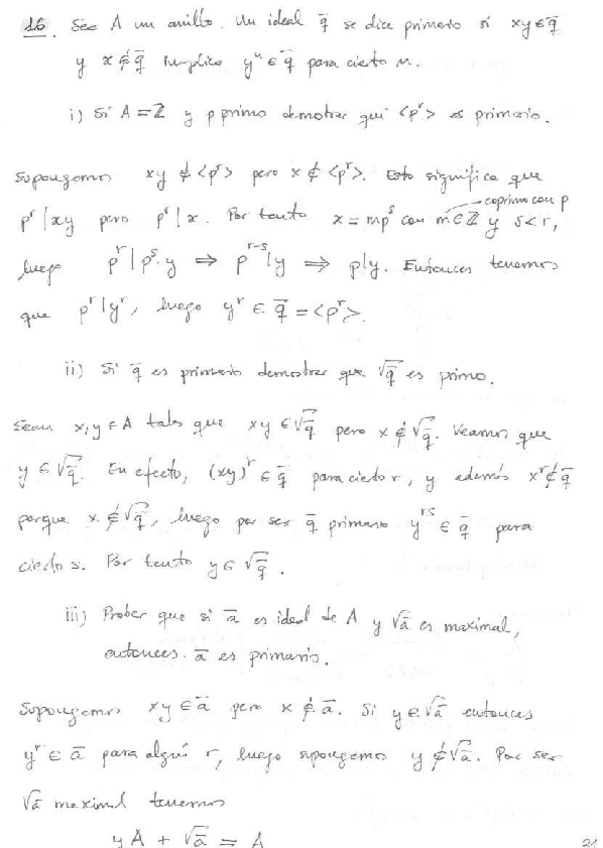 16. Sea A un anillo. Un ideal q̄ se dice primario si xy ∈ q̄
y x ∉ q̄ implica yⁿ ∈ q̄ para cierto n.
i) Si A = ℤ y p primo demostrar que <pʳ> es primario.
Supongamos xy ∉ <pʳ> pero x ∉ <pʳ>. Esto significa que
pʳ | xy pero pʳ ∤ x. Por tanto x = mpˢ con m ∈ ℤ y s < r,
coprimo con p
luego pʳ | pˢ·y ⇒ pʳ⁻ˢ | y ⇒ p | y. Entonces tenemos
que pʳ | yʳ, luego yʳ ∈ q̄ = <pʳ>.
ii) Si q̄ es primario demostrar que √q̄ es primo.
Sean x, y ∈ A tales que xy ∈ √q̄ pero x ∉ √q̄. Veamos que
y ∈ √q̄. En efecto, (xy)ʳ ∈ q̄ para cierto r, y además xʳ ∉ q̄
porque x ∉ √q̄, luego por ser q̄ primario yʳˢ ∈ q̄ para
cierto s. Por tanto y ∈ √q̄.
iii) Probar que si ā es ideal de A y √ā es maximal,
entonces ā es primario.
Supongamos xy ∈ ā pero x ∉ ā. Si y ∈ √ā entonces
yʳ ∈ ā para algún r, luego supongamos y ∉ √ā. Por ser
√ā maximal tenemos
yA + √ā = A
21